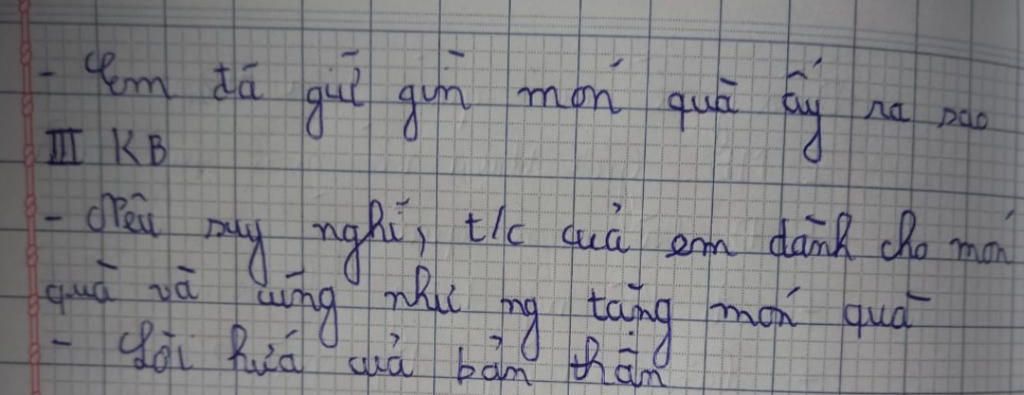 - Em đã giữ gìn món quà ấy ra sao
III KB
- Nêu suy nghĩ, t/c của em dành cho món
quà và cũng như ng tặng món quà
- Lời hứa của bản thân